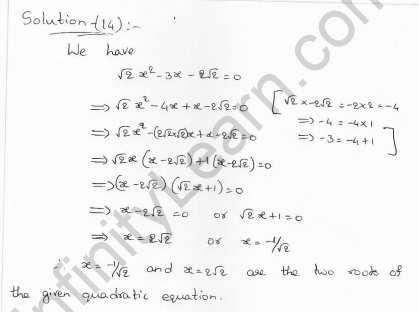 Solution-(14):-
We have
√2 x² - 3x - 2√2 = 0
⇒ √2 x² - 4x + x - 2√2 = 0 [ √2 × -2√2 = -2×2 = -4
⇒ -4 = -4×1
⇒ √2 x² - (2√2×√2)x + x - 2√2 = 0 ⇒ -3 = -4+1 ]
⇒ √2x (x - 2√2) + 1 (x - 2√2) = 0
⇒ (x - 2√2) (√2 x + 1) = 0
⇒ x - 2√2 = 0 or √2 x + 1 = 0
⇒ x = 2√2 or x = -1/√2
∴ x = -1/√2 and x = 2√2 are the two roots of
the given quadratic equation.
infinityLearn.com